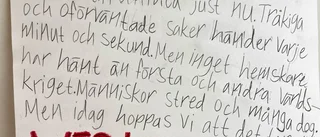 just nu. Tråkiga
och oförväntade saker händer varje
minut och sekund. Men inget hemskare
har hänt än första och andra världs-
kriget. Människor stred och många dog.
Men idag hoppas vi att det